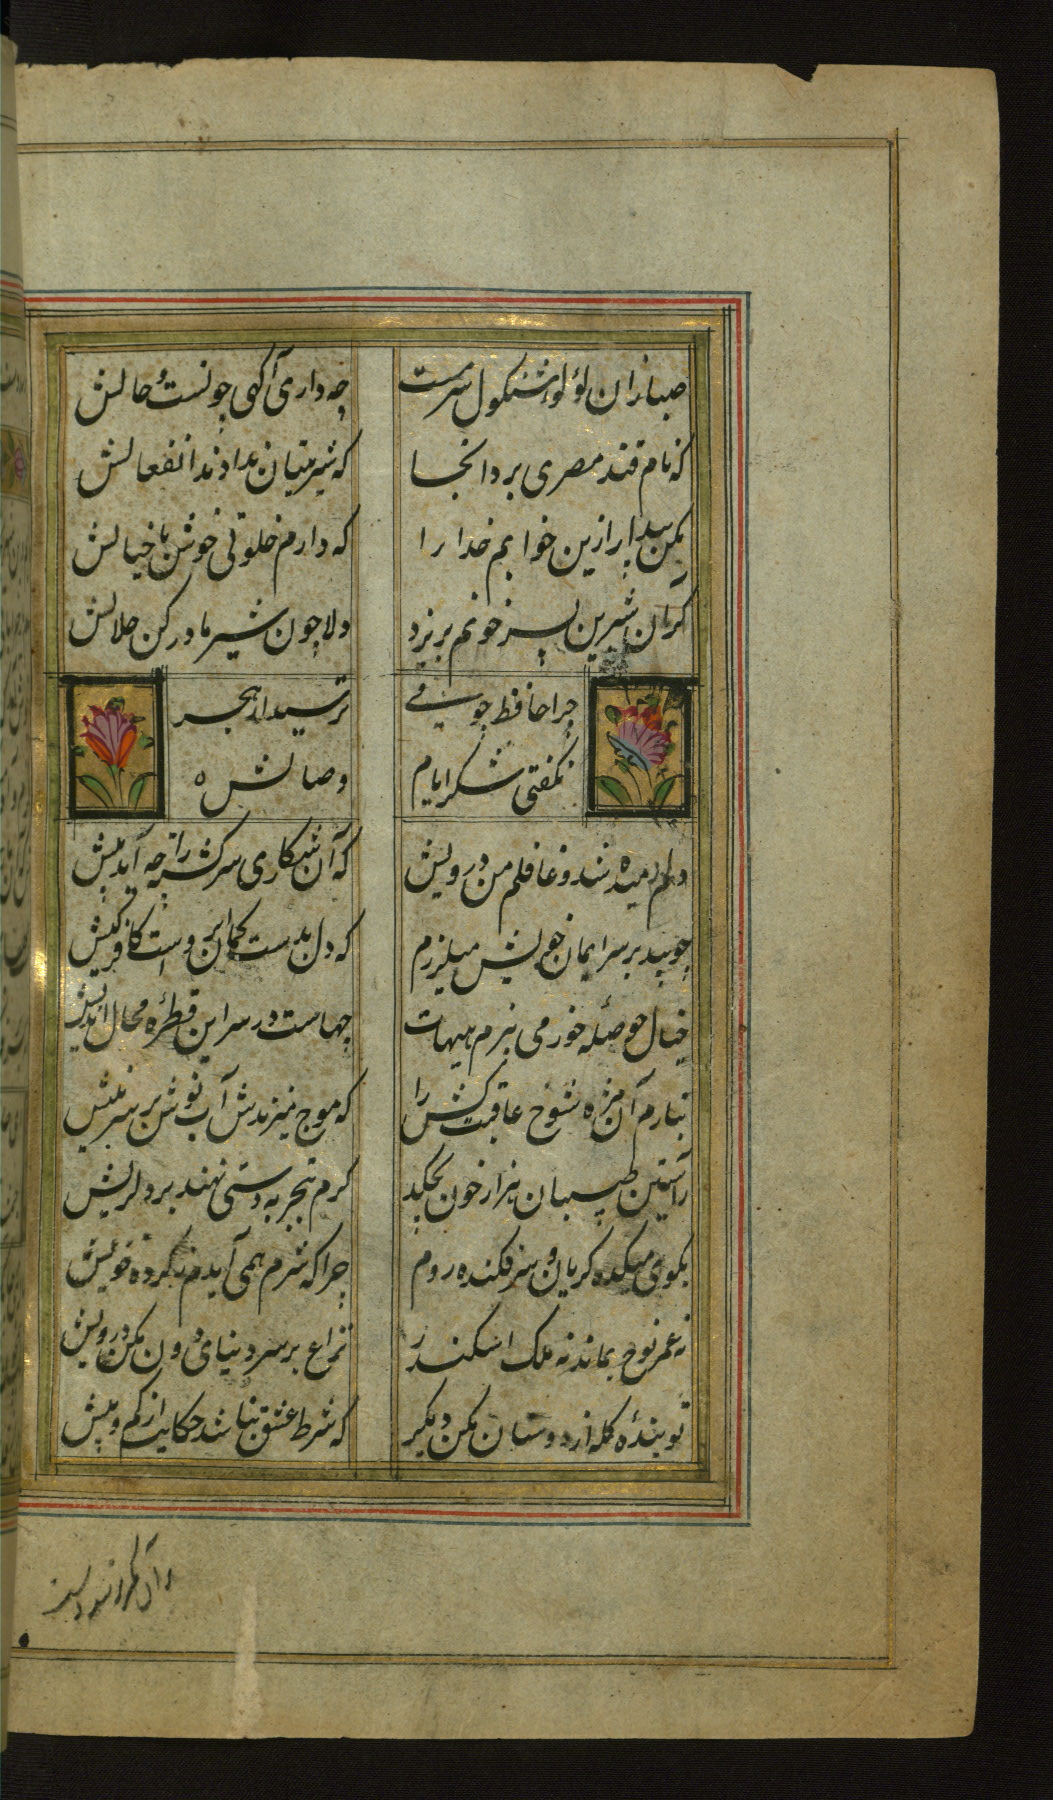 صبا زان لؤلؤ شنکول سرمست چه داری آکهی چونست حالش
که نام قند مصری برد انجا که شیرینیان ندادند انفعالش
مکن بیدار ازین خوابم خدا را که دارم خلوتی خوش با خیالش
کر آن شیرین پسر خونم بریزد دلا چون شیر مادر کن حلالش
چرا حافظ چو می ترسیدی از هجر
نکفتی شکر ایام وصالش
دلم رمیده شد و غافلم من درویش که آن شکاری سرکشته را چه آمد پیش
چو بید بر سر ایمان خویش میلرزم که دل بدست کمان ابرویست کافر کیش
خیال حوصله خور می پزم هیهات چهاست در سر این قطرۀ محال اندیش
بنازم آن مژه شوخ عاقبت کش را که موج میزندش آب نوش بر سر نیش
ز آستین طبیبان هزار خون بچکد کرم تجربه دستی نهند بر دل ریش
بکوی میکده کریان و سر فکنده روم چرا که شرم همی آیدم ز کرده خویش
نه عمر نوح بماند نه ملک اسکندر نزاع بر سر دنیای دون مکن درویش
تو بندۀ کله از دوستان مکن دیکر که شرط عشق نباشد حکایت از کم و بیش